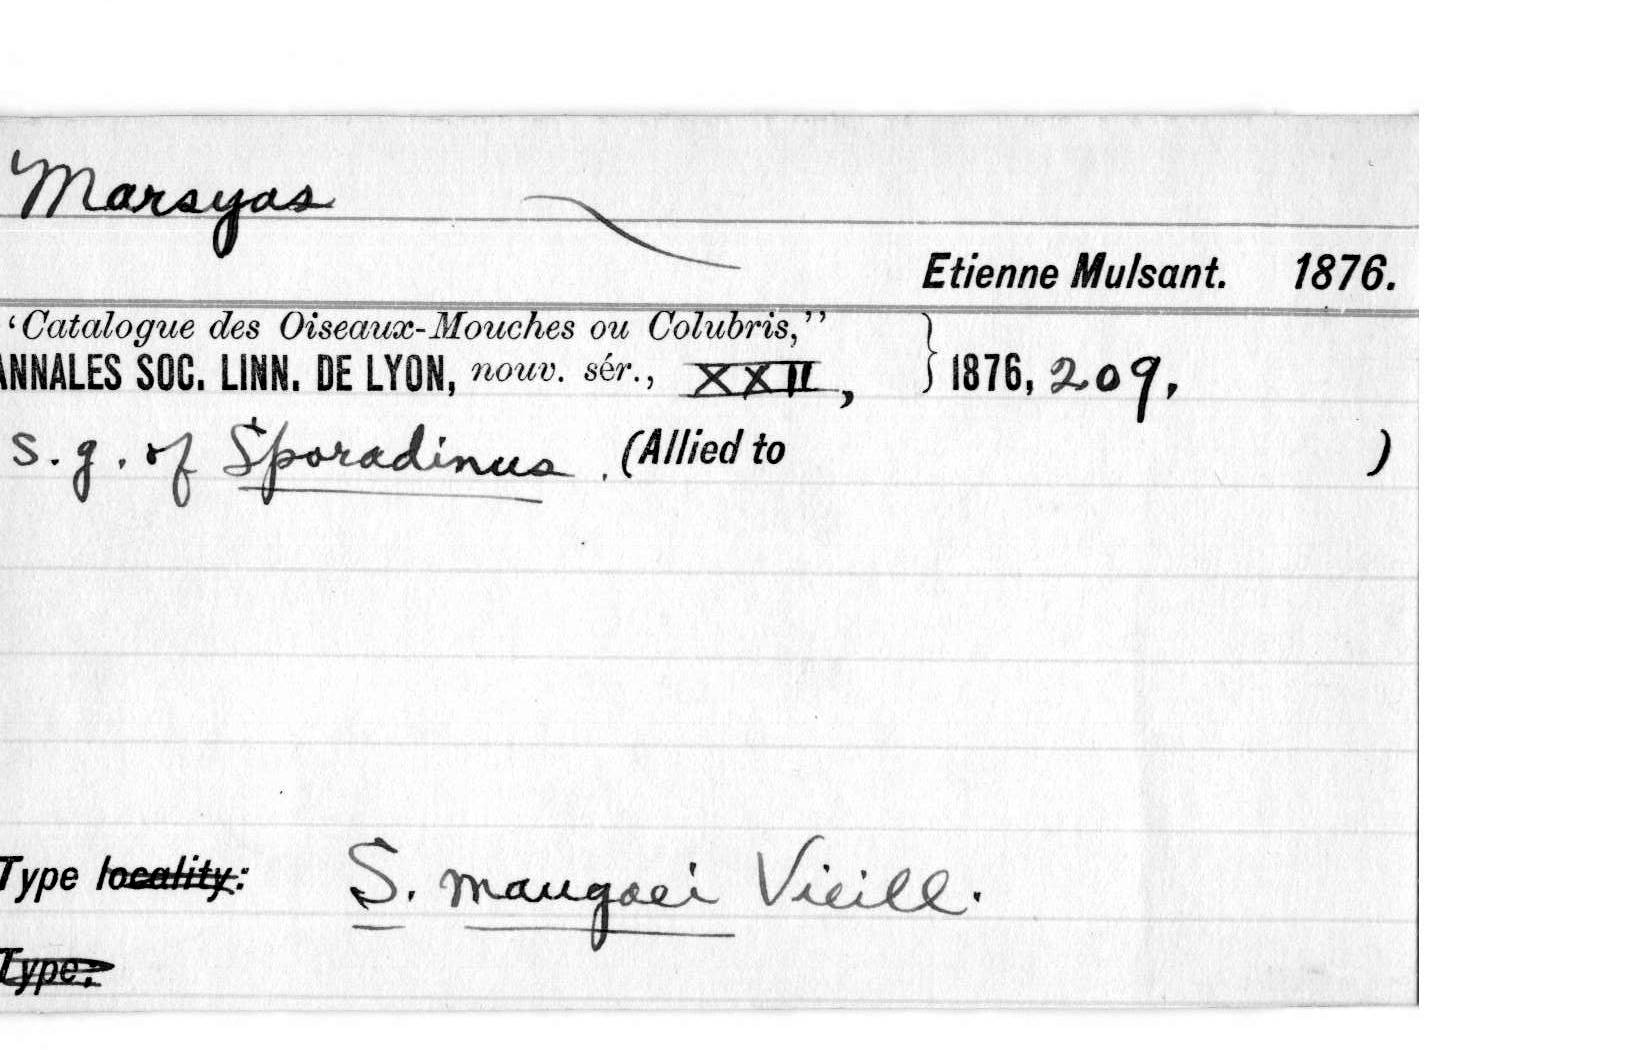 Marsyas
Etienne Mulsant. 1876.
‘Catalogue des Oiseaux-Mouches ou Colubris,’’
ANNALES SOC. LINN. DE LYON, nouv. sér., XXII, } 1876, 209,
s.g. of Sporadinus. (Allied to )
Type locality: S. maugaei Vieill.
Type: